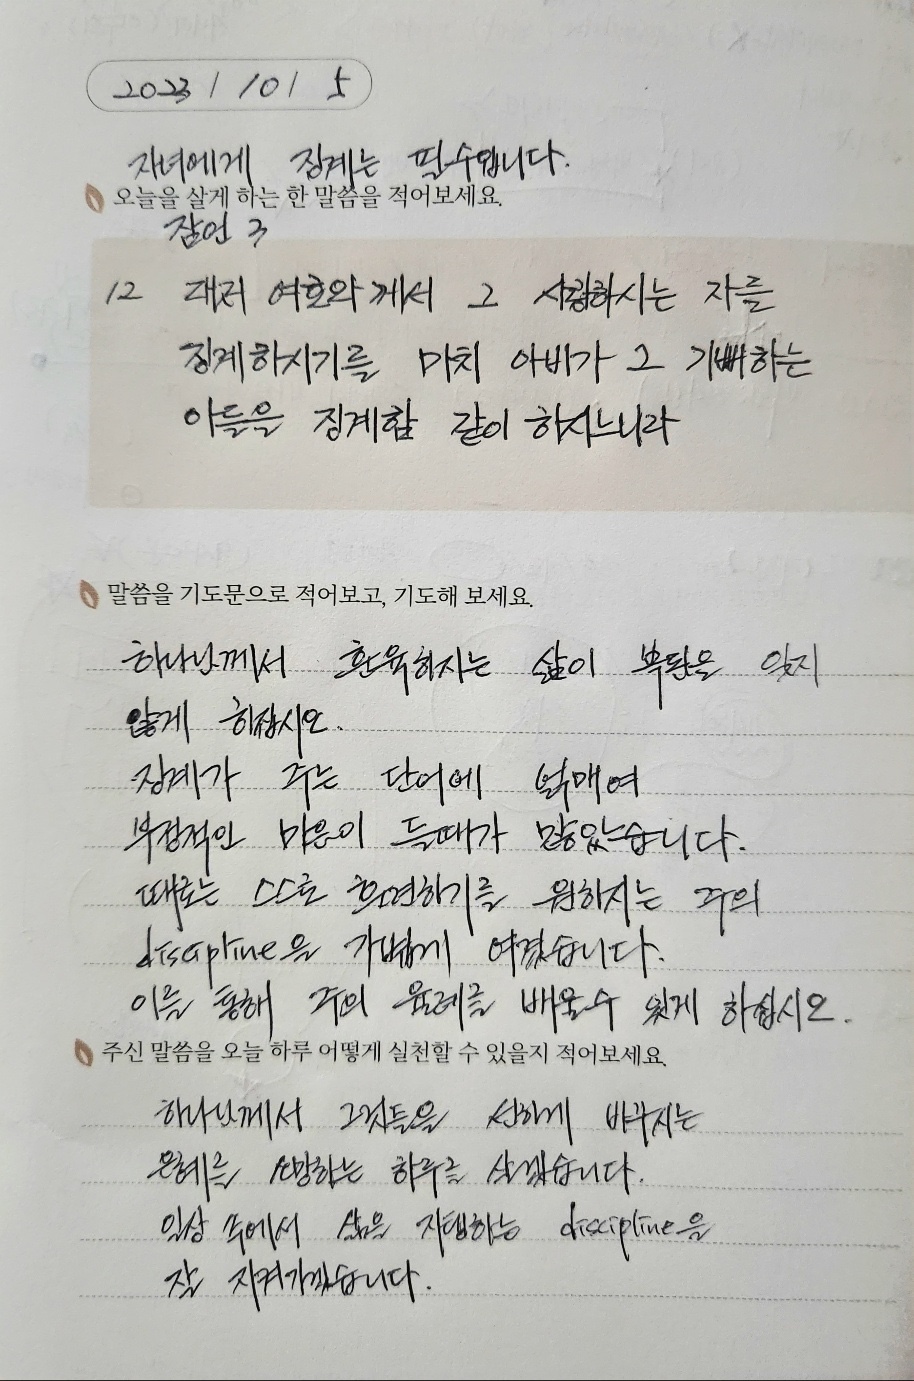 2023 / 10 / 5
자녀에게 징계는 필수입니다.
오늘을 살게 하는 한 말씀을 적어보세요.
잠언 3
12 대저 여호와께서 그 사랑하시는 자를
징계하시기를 마치 아비가 그 기뻐하는
아들을 징계함 같이 하시느니라
말씀을 기도문으로 적어보고, 기도해 보세요.
하나님께서 훈육하시는 삶이 복됨을 잊지
않게 하십시오.
징계가 주는 단어에 얽매여
부정적인 마음이 들때가 많았습니다.
때로는 스스로 훈련하기를 원하시는 주의
discipline을 가볍게 여겼습니다.
이를 통해 주의 율례를 배울수 있게 하십시오.
주신 말씀을 오늘 하루 어떻게 실천할 수 있을지 적어보세요.
하나님께서 그것들을 선하게 바꾸시는
은혜를 소망하는 하루를 살겠습니다.
일상 속에서 삶을 지탱하는 discipline을
잘 지켜가겠습니다.